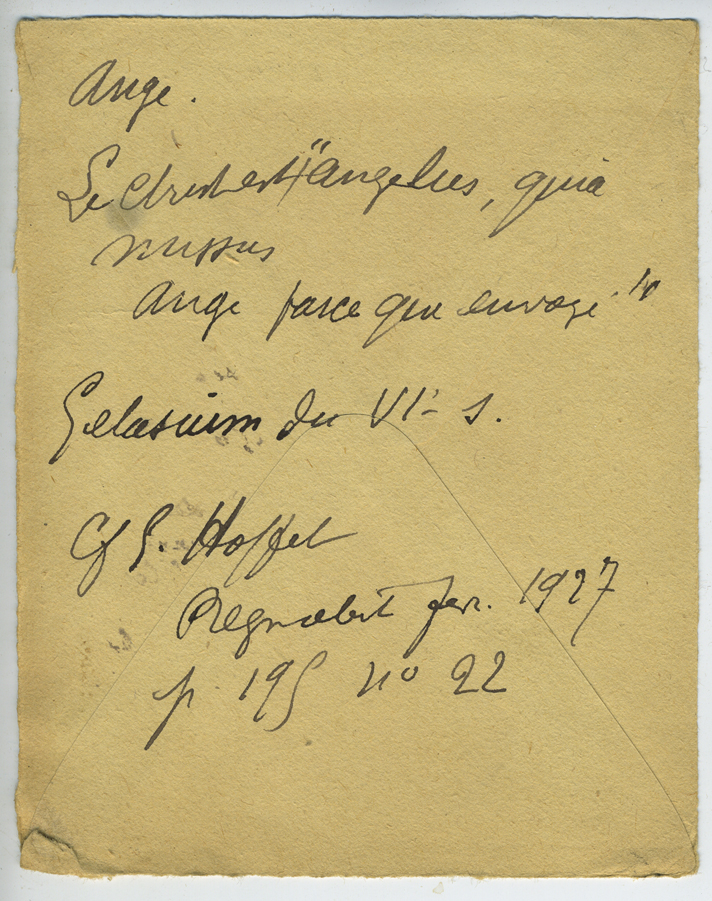 Ange.
Le Christ est "Angelus, quia
missus
Ange parce que envoyé"
Gelasium du VIe s.
Cf G. Hoffet
Regnabit fev. 1927
p 195 no 22